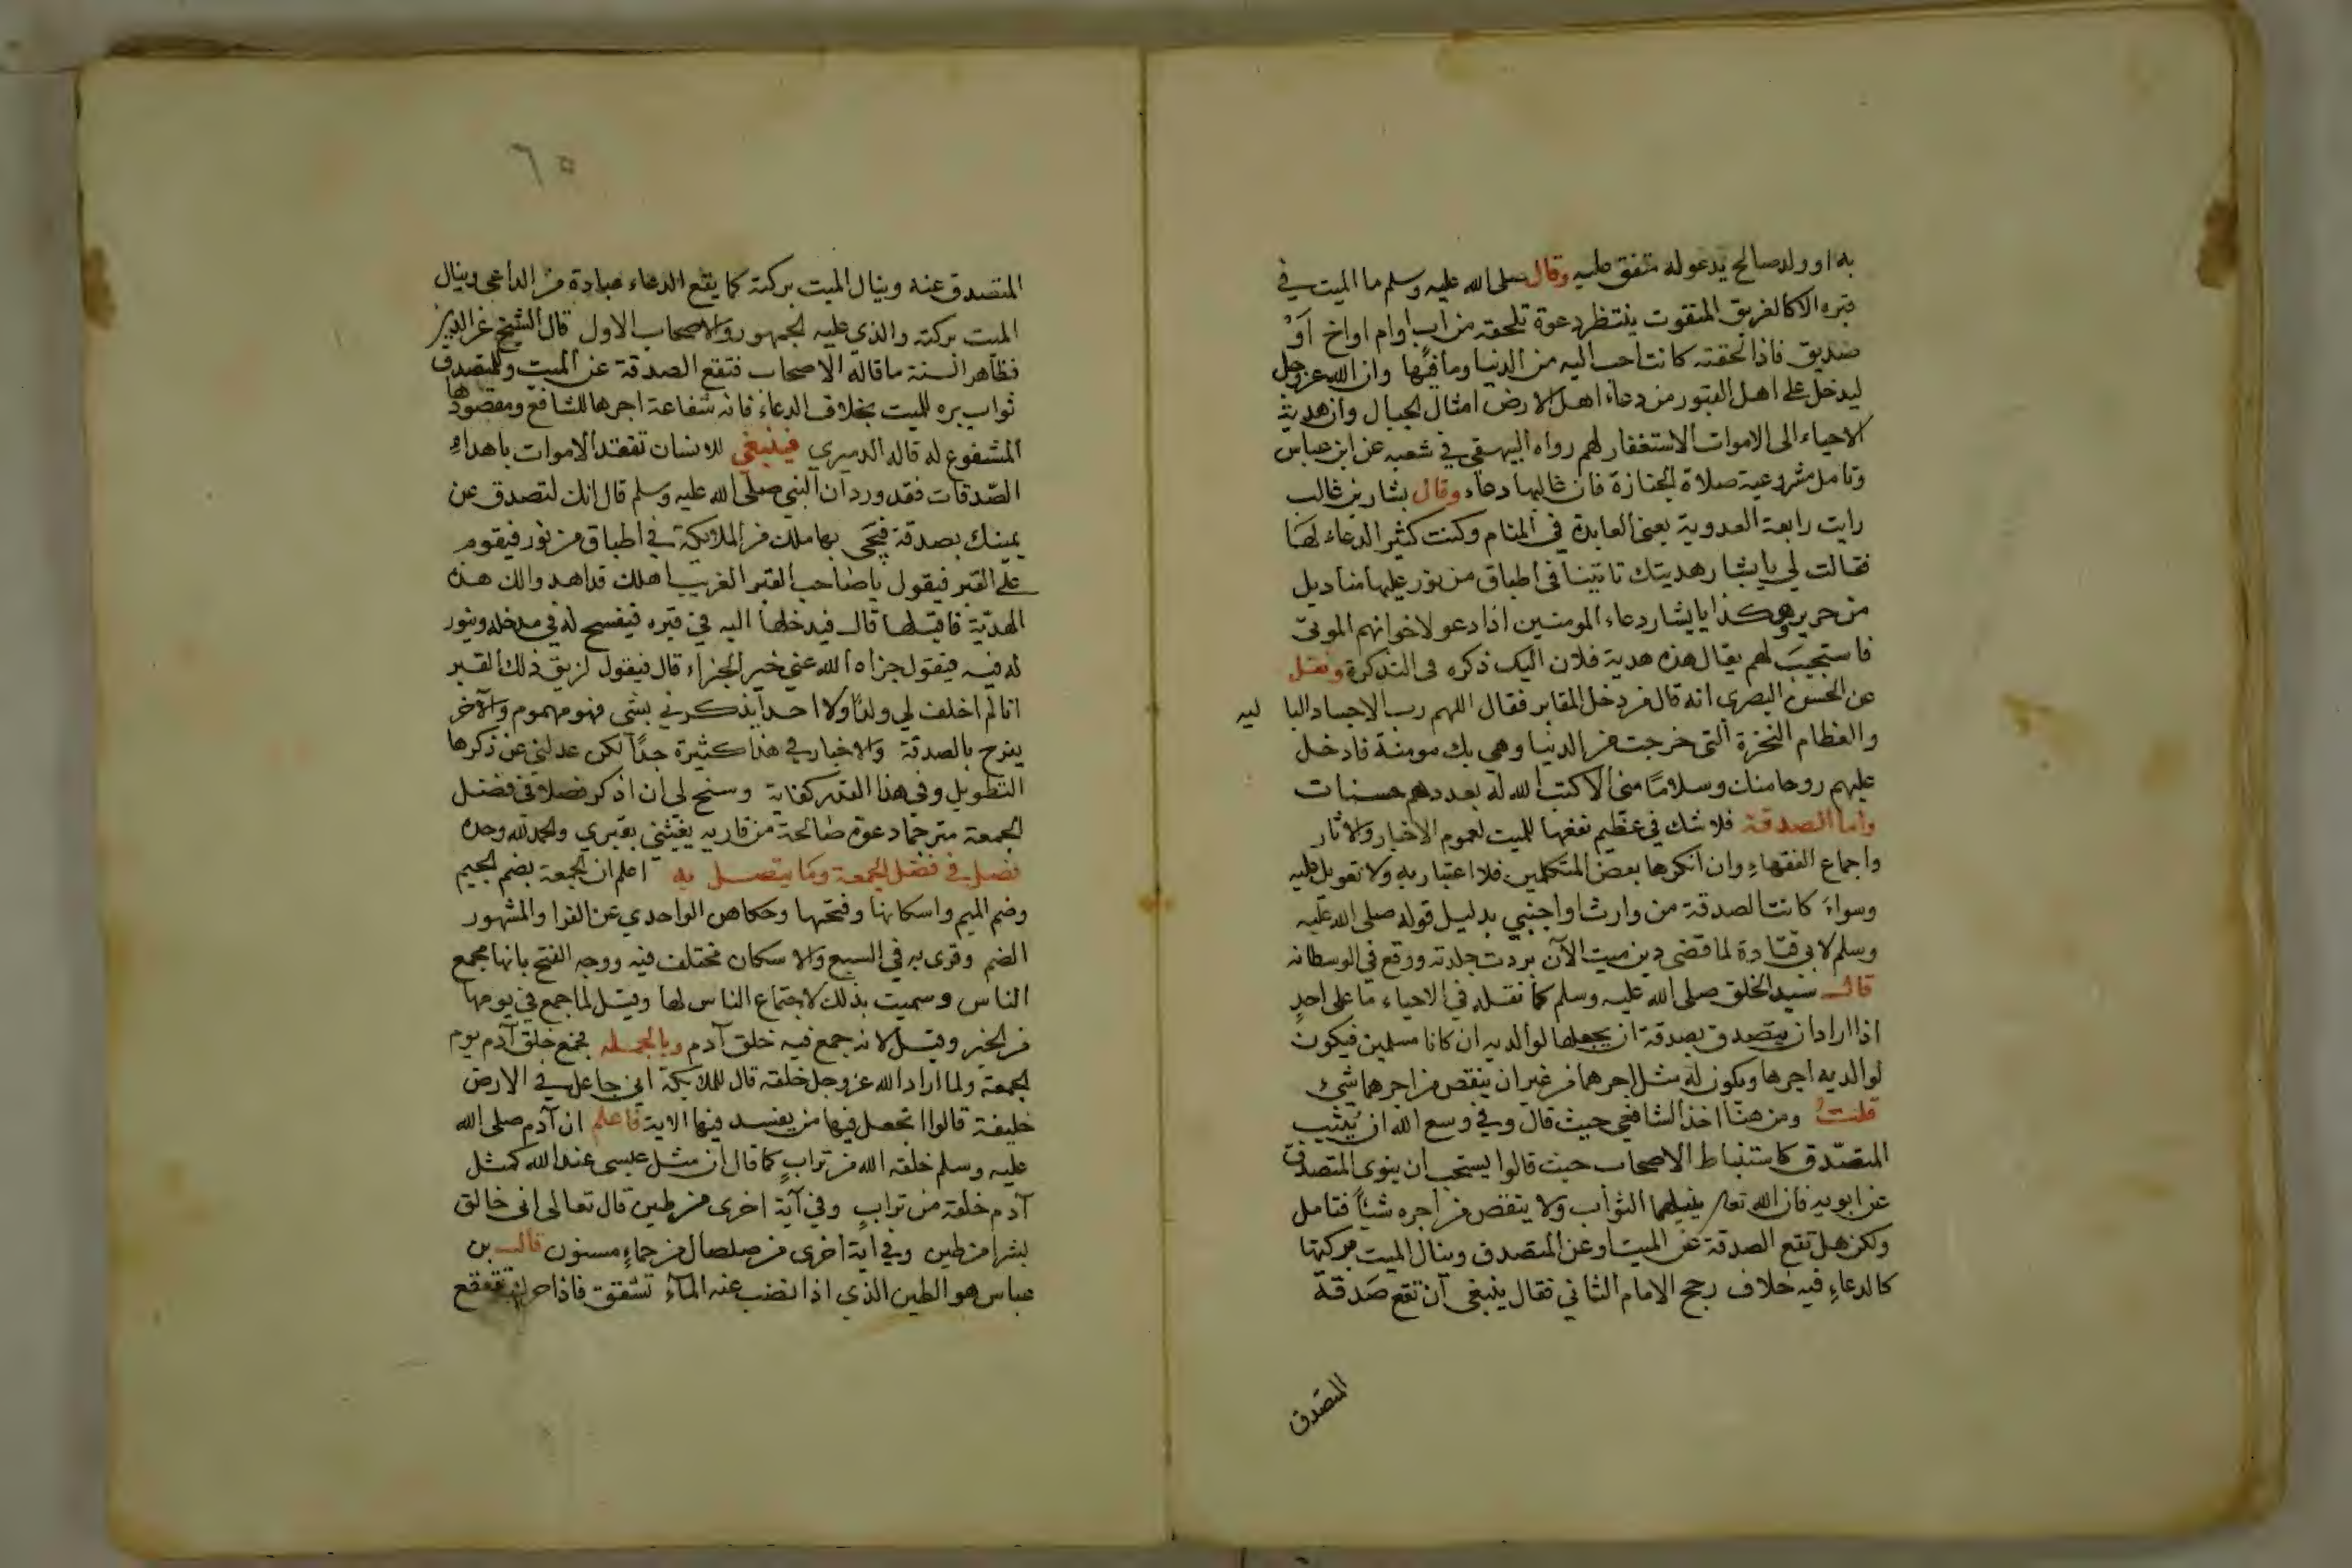 به او ولد صالح يدعو له متفق عليه وقال صلى الله عليه وسلم ما الميت في
قبره الا كالغريق المتغوت ينتظر دعوة تلحقه من اب او ام او اخ أَوْ
صديق فاذا لحقته كانت احب اليه من الدنيا وما فيها وان الله عز وجل
ليدخل على اهل القبور من دعاء اهل الارض امثال الجبال وان هدية
الاحياء الى الاموات الاستغفار لهم رواه البيهقي في شعبه عن ابن عباس
وتامل مشروعية صلاة الجنازة فان غالبها دعاء وقال بشار بن غالب
رايت رابعة العدوية يعني العابدة في المنام وكنت كثير الدعاء لها
فقالت لي يا بشار هديتك تاتينا في اطباق من نور عليها مناديل
من حرير وهكذا يا بشار دعاء المومنين اذا دعو لاخوانهم الموتى
فاستجيب لهم يقال هذه هدية فلان اليك ذكره في التذكرة ونقل
عن الحسن البصري انه قال من دخل المقابر فقال اللهم رب الاجساد البا ليه
والعظام النخرة التي خرجت من الدنيا وهي بك مومنة فادخل
عليهم روحا منك وسلامًا مني الا كتب الله له بعددهم حسنات
واما الصدقة فلا شك في عظيم نفعها للميت لعموم الاخبار والاثار
واجماع الفقهاء وان انكرها بعض المتكلمين فلا اعتبار به ولا تعويل عليه
وسواء كانت الصدقة من وارث او اجنبي بدليل قوله صلى الله عليه
وسلم لابي قتادة لما قضى دين ميت الآن بردت جلدته ووقع في الوسط انه
قال سيد الخلق صلى الله عليه وسلم كما نقله في الاحياء ما على احد
اذا اراد ان يتصدق بصدقة ان يجعلها لوالديه ان كانا مسلمين فيكون
لوالديه اجرها ويكون له مثل اجرهما من غير ان ينقص من اجرهما شيء
قلت ومن هنا اخذ الشافعي حيث قال وفي وسع الله ان يثيب
المتصدق كاستنباط الاصحاب حيث قالوا يستحب ان ينوي المتصدق
عن ابويه فان الله تعالى ينيلهما الثواب ولا ينقص من اجره شيئًا فتامل
ولكن هل تقع الصدقة عن الميت او عن المتصدق وينال الميت بركتها
كالدعاء فيه خلاف رجح الامام الثاني فقال ينبغي أن تقع صَدقة
المتصدق
٦٥
المتصدق عنه وينال الميت بركته كما يقع الدعاء عبادة من الداعي وينال
الميت بركته والذي عليه الجمهور والاصحاب الاول قال الشيخ عز الدين
فظاهر السنة ما قاله الاصحاب فتقع الصدقة عن الميت وللمتصدق
ثواب بره للميت بخلاف الدعاء فانه شفاعة اجرها للشافع ومقصودها
المشفوع له قاله الدميري فينبغي للانسان تفقد الاموات باهداء
الصدقات فقد ورد ان النبي صلى الله عليه وسلم قال انك لتصدق عن
ميتك بصدقة فيجى بها ملك من الملايكة في اطباق من نور فيقوم
على القبر فيقول يا صاحب القبر الغريب اهلك قد اهدوا لك هذه
الهديّة فاقبلها قال فيدخلها اليه في قبره فيفسح له في مدخله وينور
له فيه فيقول جزاه الله عني خير الجزاء قال فيقول لزيق ذلك القبر
انا لم اخلف لي ولدًا ولا احدا يذكرني بشي فهو مهموم والآخر
يفرح بالصدقة والاخبار في هذا كثيرة جدًا لكن عدلني عن ذكرها
التطويل وفي هذا القدر كفاية وسنح لي ان اذكر فصلا في فضل
الجمعة مترجما دعوة صالحة من قاريه يغيثني بقبري والحمد لله وحده
فصل في فضل الجمعة وما يتصل به اعلم ان الجمعة بضم الجيم
وضم الميم واسكانها وفتحها وحكاهن الواحدي عن الفرا والمشهور
الضم وقري به في السبع والاسكان مختلف فيه ووجه الفتح بانها مجمع
الناس وسميت بذلك لاجتماع الناس لها وقيل لما جمع في يومها
من الخير وقيل لانه جمع فيه خلق آدم وبالجملة فجمع خلق آدم يوم
الجمعة ولما اراد الله عز وجل خلقه قال للملايكة اني جاعل في الارض
خليفة قالوا اتجعل فيها من يفسد فيها الاية فاعلم ان آدم صلى الله
عليه وسلم خلقه الله من تراب كما قال ان مثل عيسى عند الله كمثل
آدم خلقه من تراب وفي آية اخرى من طين قال تعالى اني خالق
بشرا من طين وفي اية اخرى من صلصال من حماء مسنون قال بن
عباس هو الطين الذي اذا نضب عنه الماء تشقق فاذا حرك تقعقع